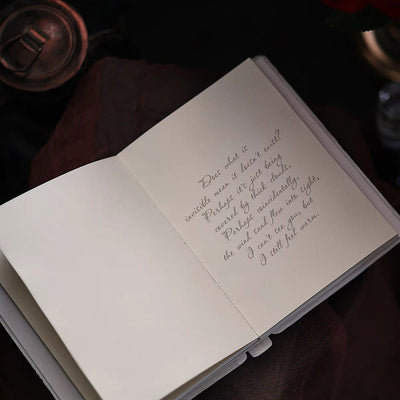 Does what it
invisible mean it doesn't exist?
Perhaps it's just being
covered by thick clouds,
Perhaps coincidentally,
the wind sand flew into sight,
I can't see you, but
I still feel warm.